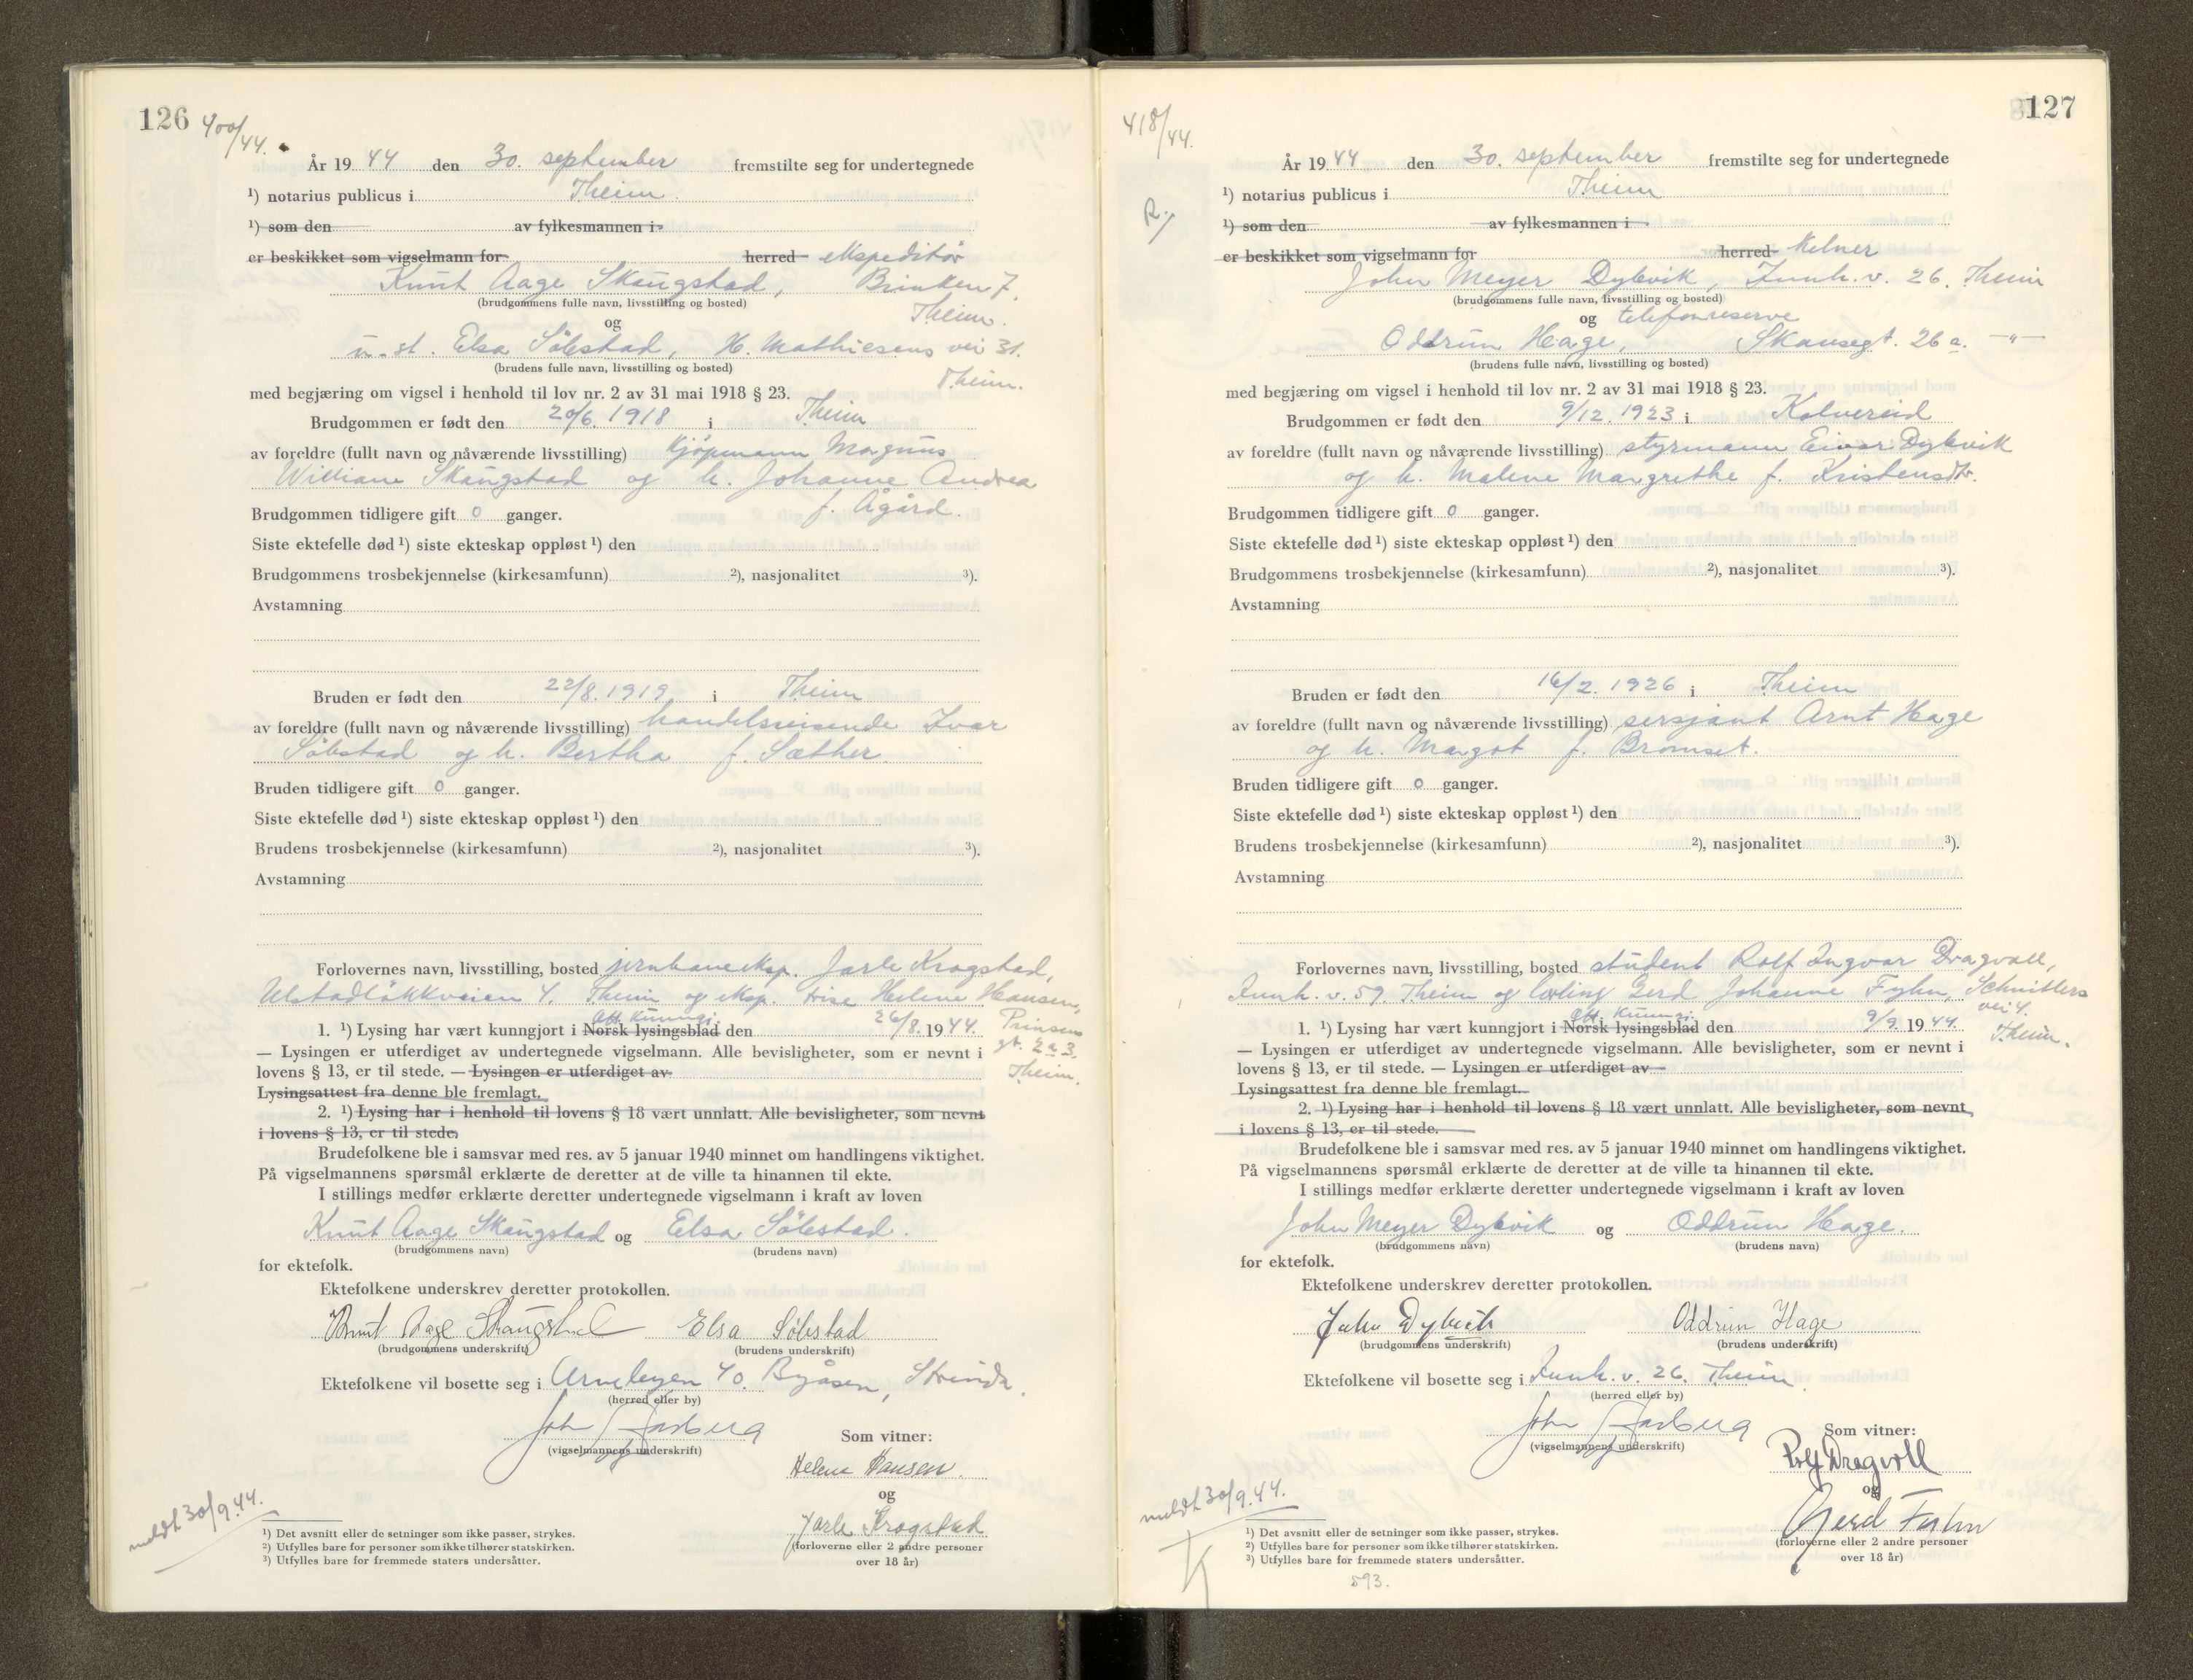 126
400/44.
År 19 44 den 30. september fremstilte seg for undertegnede
¹) notarius publicus i Theim
¹) som den av fylkesmannen i
er beskikket som vigselmann for herred ekspeditör
Knut Aage Skaugstad, Brinken 7.
(brudgommens fulle navn, livsstilling og bosted)
Theim.
og
u. st. Elsa Söbstad, H. Mathiesens vei 31.
(brudens fulle navn, livsstilling og bosted)
Theim.
med begjæring om vigsel i henhold til lov nr. 2 av 31 mai 1918 § 23.
Brudgommen er født den 20/6. 1918 i Theim
av foreldre (fullt navn og nåværende livsstilling) kjöpmann Magnus
William Skaugstad og h. Johanne Andrea
f. Ågård.
Brudgommen tidligere gift 0 ganger.
Siste ektefelle død ¹) siste ekteskap oppløst ¹) den
Brudgommens trosbekjennelse (kirkesamfunn) ²), nasjonalitet ³).
Avstamning
Bruden er født den 22/8. 1919 i Theim
av foreldre (fullt navn og nåværende livsstilling) handelsreisende Ivar
Söbstad og h. Bertha f. Sæther.
Bruden tidligere gift 0 ganger.
Siste ektefelle død ¹) siste ekteskap oppløst ¹) den
Brudens trosbekjennelse (kirkesamfunn) ²), nasjonalitet ³).
Avstamning
Forlovernes navn, livsstilling, bosted jernbaneeksp. Jarle Krogstad,
Ulstadlökkveien 4. Theim og eksp. Helene Hansen,
Prinsens gt. 2a3, Theim.
1. ¹) Lysing har vært kunngjort i Norsk lysingsblad Off. kunngj. den 26/8. 1944.
— Lysingen er utferdiget av undertegnede vigselmann. Alle bevisligheter, som er nevnt i
lovens § 13, er til stede. — Lysingen er utferdiget av
Lysingsattest fra denne ble fremlagt.
2. ¹) Lysing har i henhold til lovens § 18 vært unnlatt. Alle bevisligheter, som nevnt
i lovens § 13, er til stede.
Brudefolkene ble i samsvar med res. av 5 januar 1940 minnet om handlingens viktighet.
På vigselmannens spørsmål erklærte de deretter at de ville ta hinannen til ekte.
I stillings medfør erklærte deretter undertegnede vigselmann i kraft av loven
Knut Aage Skaugstad og Elsa Söbstad.
(brudgommens navn) (brudens navn)
for ektefolk.
Ektefolkene underskrev deretter protokollen.
Knut Aage Skaugstad Elsa Söbstad
(brudgommens underskrift) (brudens underskrift)
Ektefolkene vil bosette seg i 40. Byåsen, Strinda.
(herred eller by)
John Aarberg
(vigselmannens underskrift)
Som vitner:
Helene Hansen.
og
Jarle Krogstad
(forloverne eller 2 andre personer
over 18 år)
meldt 30/9.44.
¹) Det avsnitt eller de setninger som ikke passer, strykes.
²) Utfylles bare for personer som ikke tilhører statskirken.
³) Utfylles bare for fremmede staters undersåtter.
127
418/44.
R.
År 19 44 den 30. september fremstilte seg for undertegnede
¹) notarius publicus i Theim
¹) som den av fylkesmannen i
er beskikket som vigselmann for herred Kelner
John Meyer Dybvik, Innh. v. 26. Theim
(brudgommens fulle navn, livsstilling og bosted)
og telefonreserve
Oddrun Hage, Skansegt. 26 a. —"—
(brudens fulle navn, livsstilling og bosted)
med begjæring om vigsel i henhold til lov nr. 2 av 31 mai 1918 § 23.
Brudgommen er født den 9/12. 1923 i Kolvereid
av foreldre (fullt navn og nåværende livsstilling) styrmann Einar Dybvik
og h. Malene Margrethe f. Kristensdtr.
Brudgommen tidligere gift 0 ganger.
Siste ektefelle død ¹) siste ekteskap oppløst ¹) den
Brudgommens trosbekjennelse (kirkesamfunn) ²), nasjonalitet ³).
Avstamning
Bruden er født den 16/2. 1926 i Theim
av foreldre (fullt navn og nåværende livsstilling) sersjant Arnt Hage
og h. Margot f. Bromset.
Bruden tidligere gift 0 ganger.
Siste ektefelle død ¹) siste ekteskap oppløst ¹) den
Brudens trosbekjennelse (kirkesamfunn) ²), nasjonalitet ³).
Avstamning
Forlovernes navn, livsstilling, bosted student Rolf Ingvar Dragvoll,
Innh. v. 59 Theim og Gerd Johanne Fyhn, Schnitlers
vei 4. Theim.
1. ¹) Lysing har vært kunngjort i Norsk lysingsblad Off. kunngj. den 9/9. 1944.
— Lysingen er utferdiget av undertegnede vigselmann. Alle bevisligheter, som er nevnt i
lovens § 13, er til stede. — Lysingen er utferdiget av
Lysingsattest fra denne ble fremlagt.
2. ¹) Lysing har i henhold til lovens § 18 vært unnlatt. Alle bevisligheter, som nevnt
i lovens § 13, er til stede.
Brudefolkene ble i samsvar med res. av 5 januar 1940 minnet om handlingens viktighet.
På vigselmannens spørsmål erklærte de deretter at de ville ta hinannen til ekte.
I stillings medfør erklærte deretter undertegnede vigselmann i kraft av loven
John Meyer Dybvik og Oddrun Hage.
(brudgommens navn) (brudens navn)
for ektefolk.
Ektefolkene underskrev deretter protokollen.
John Dybvik Oddrun Hage
(brudgommens underskrift) (brudens underskrift)
Ektefolkene vil bosette seg i Innh. v. 26. Theim.
(herred eller by)
John Aarberg
(vigselmannens underskrift)
Som vitner:
Rolf Dragvoll
og
Gerd Fyhn
(forloverne eller 2 andre personer
over 18 år)
meldt 30/9.44.
¹) Det avsnitt eller de setninger som ikke passer, strykes.
²) Utfylles bare for personer som ikke tilhører statskirken.
³) Utfylles bare for fremmede staters undersåtter.
593.